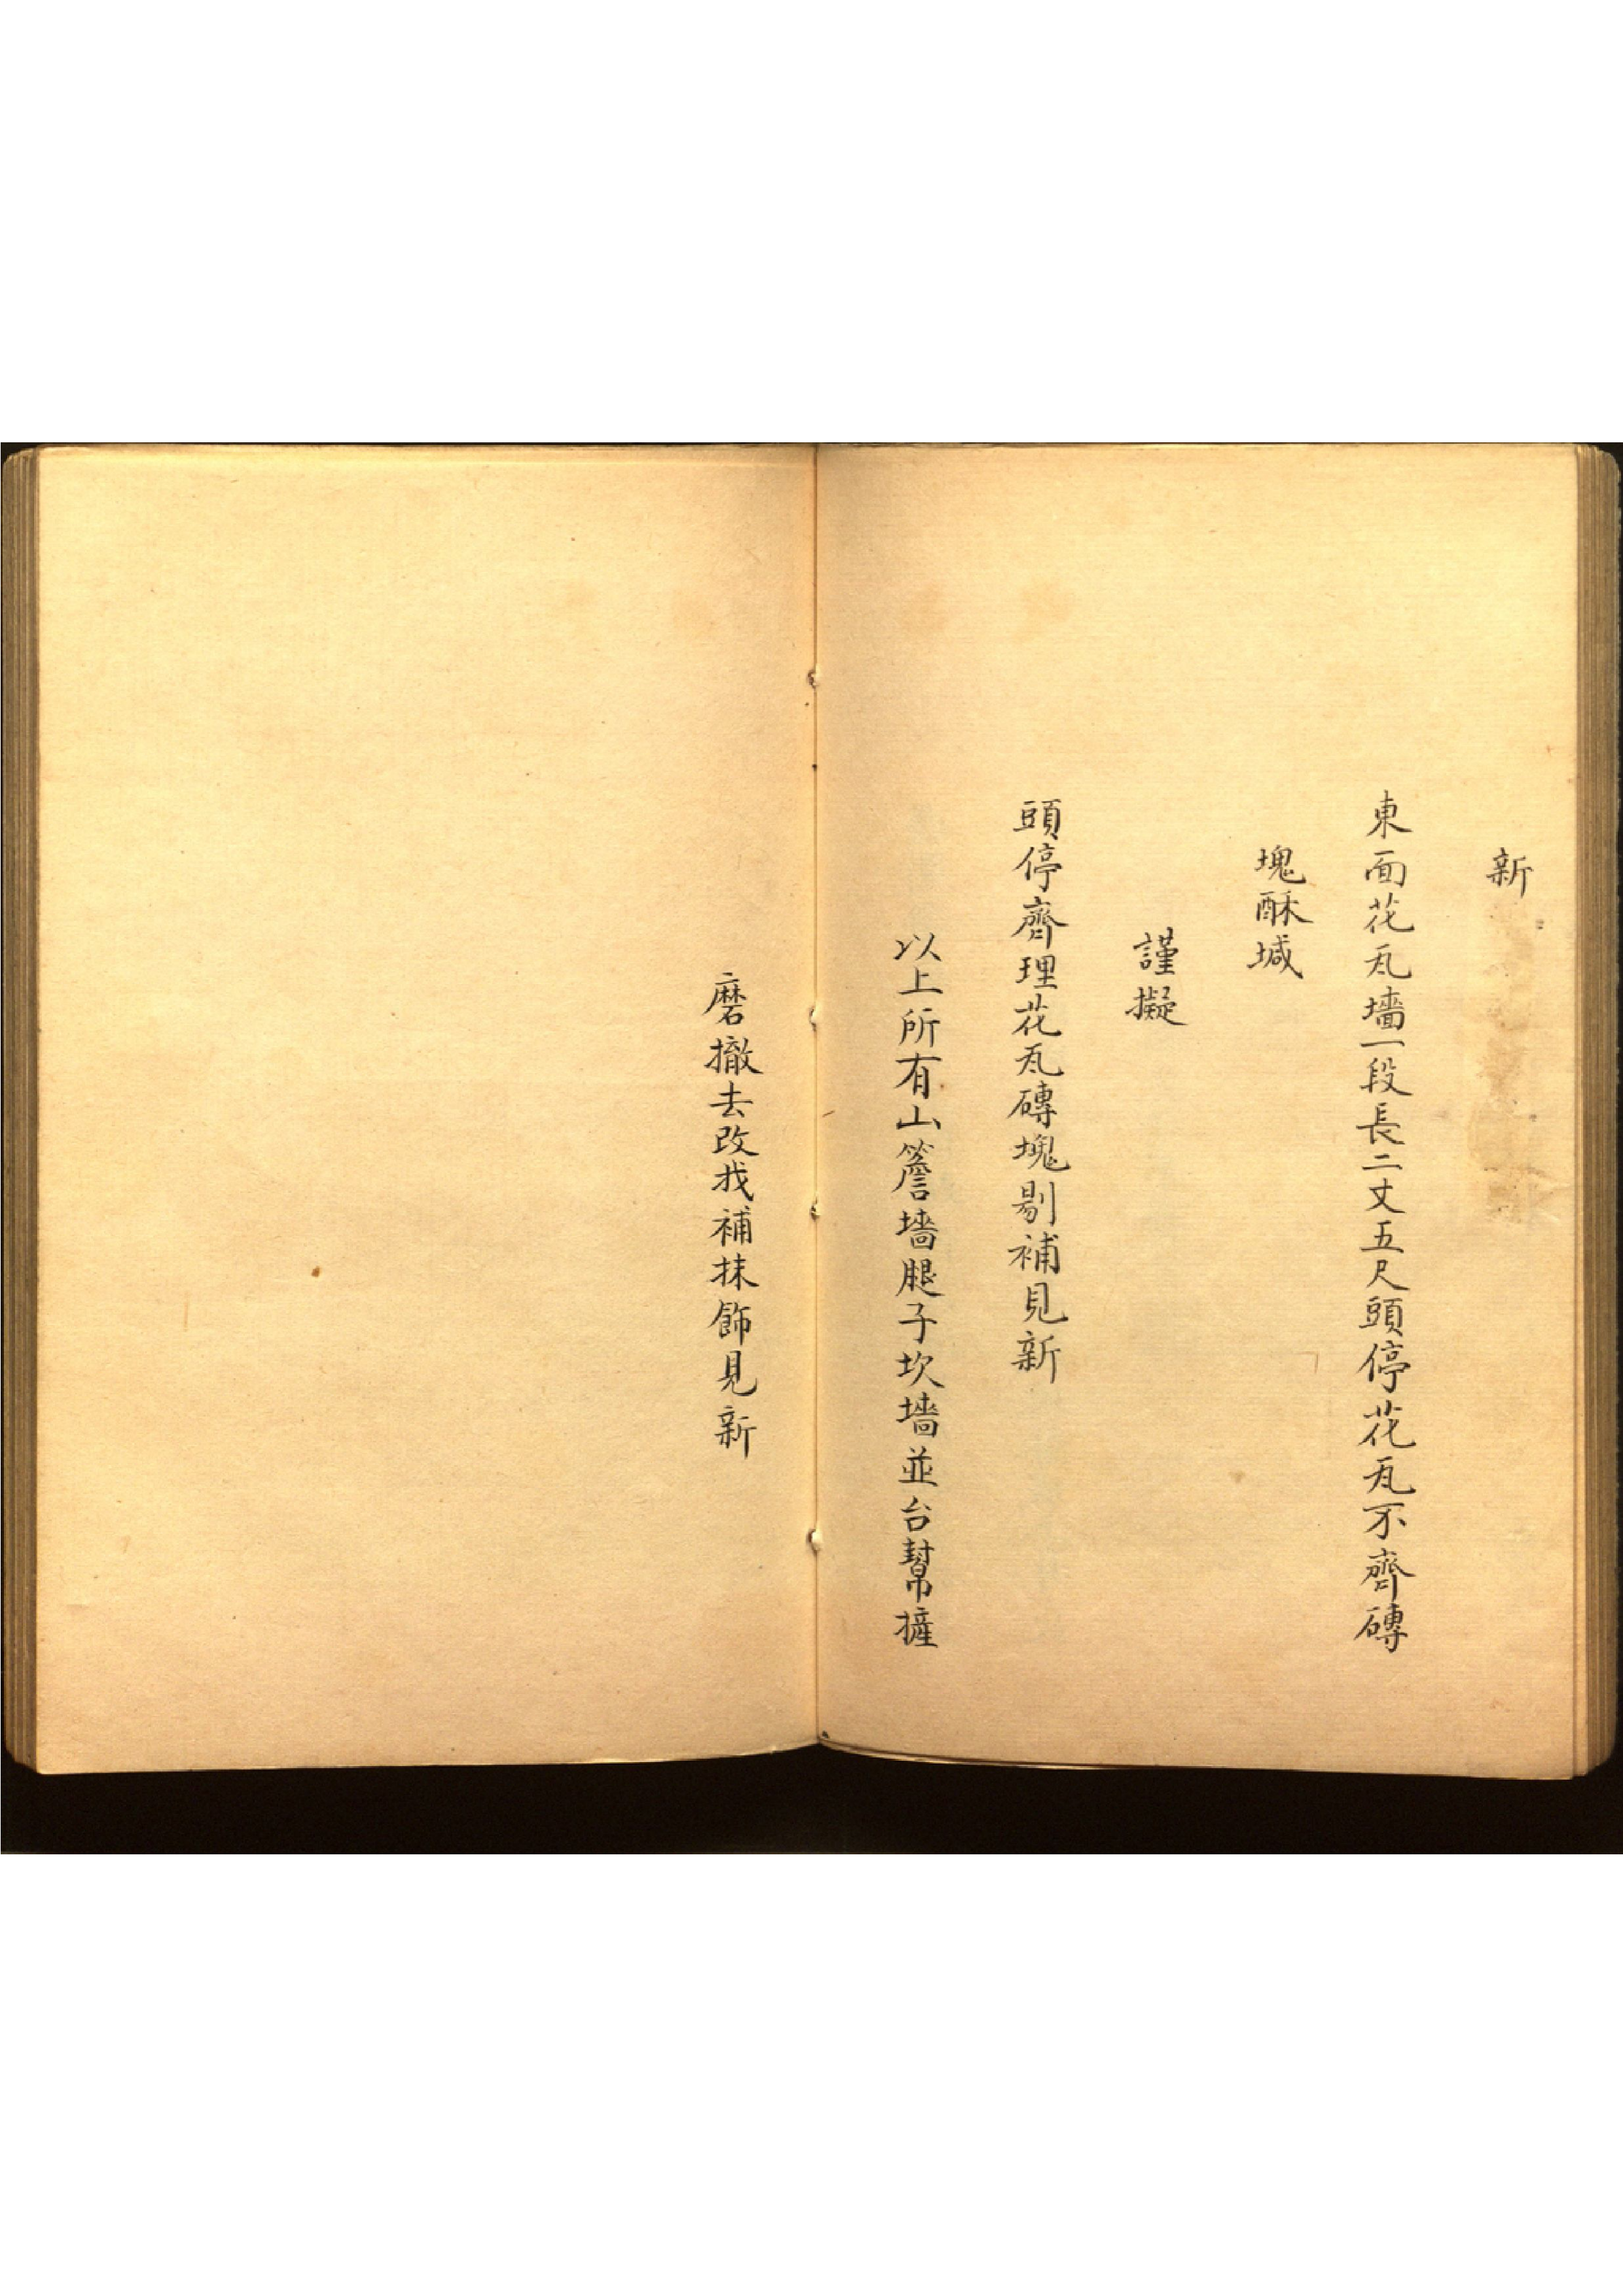 新
東面花瓦墻一段長二丈五尺頭停花瓦不齊磚
塊酥堿
謹擬
頭停齊理花瓦磚塊剔補見新
以上所有山簷墻腿子坎墻並台幫摧
磨撤去改找補抹飾見新